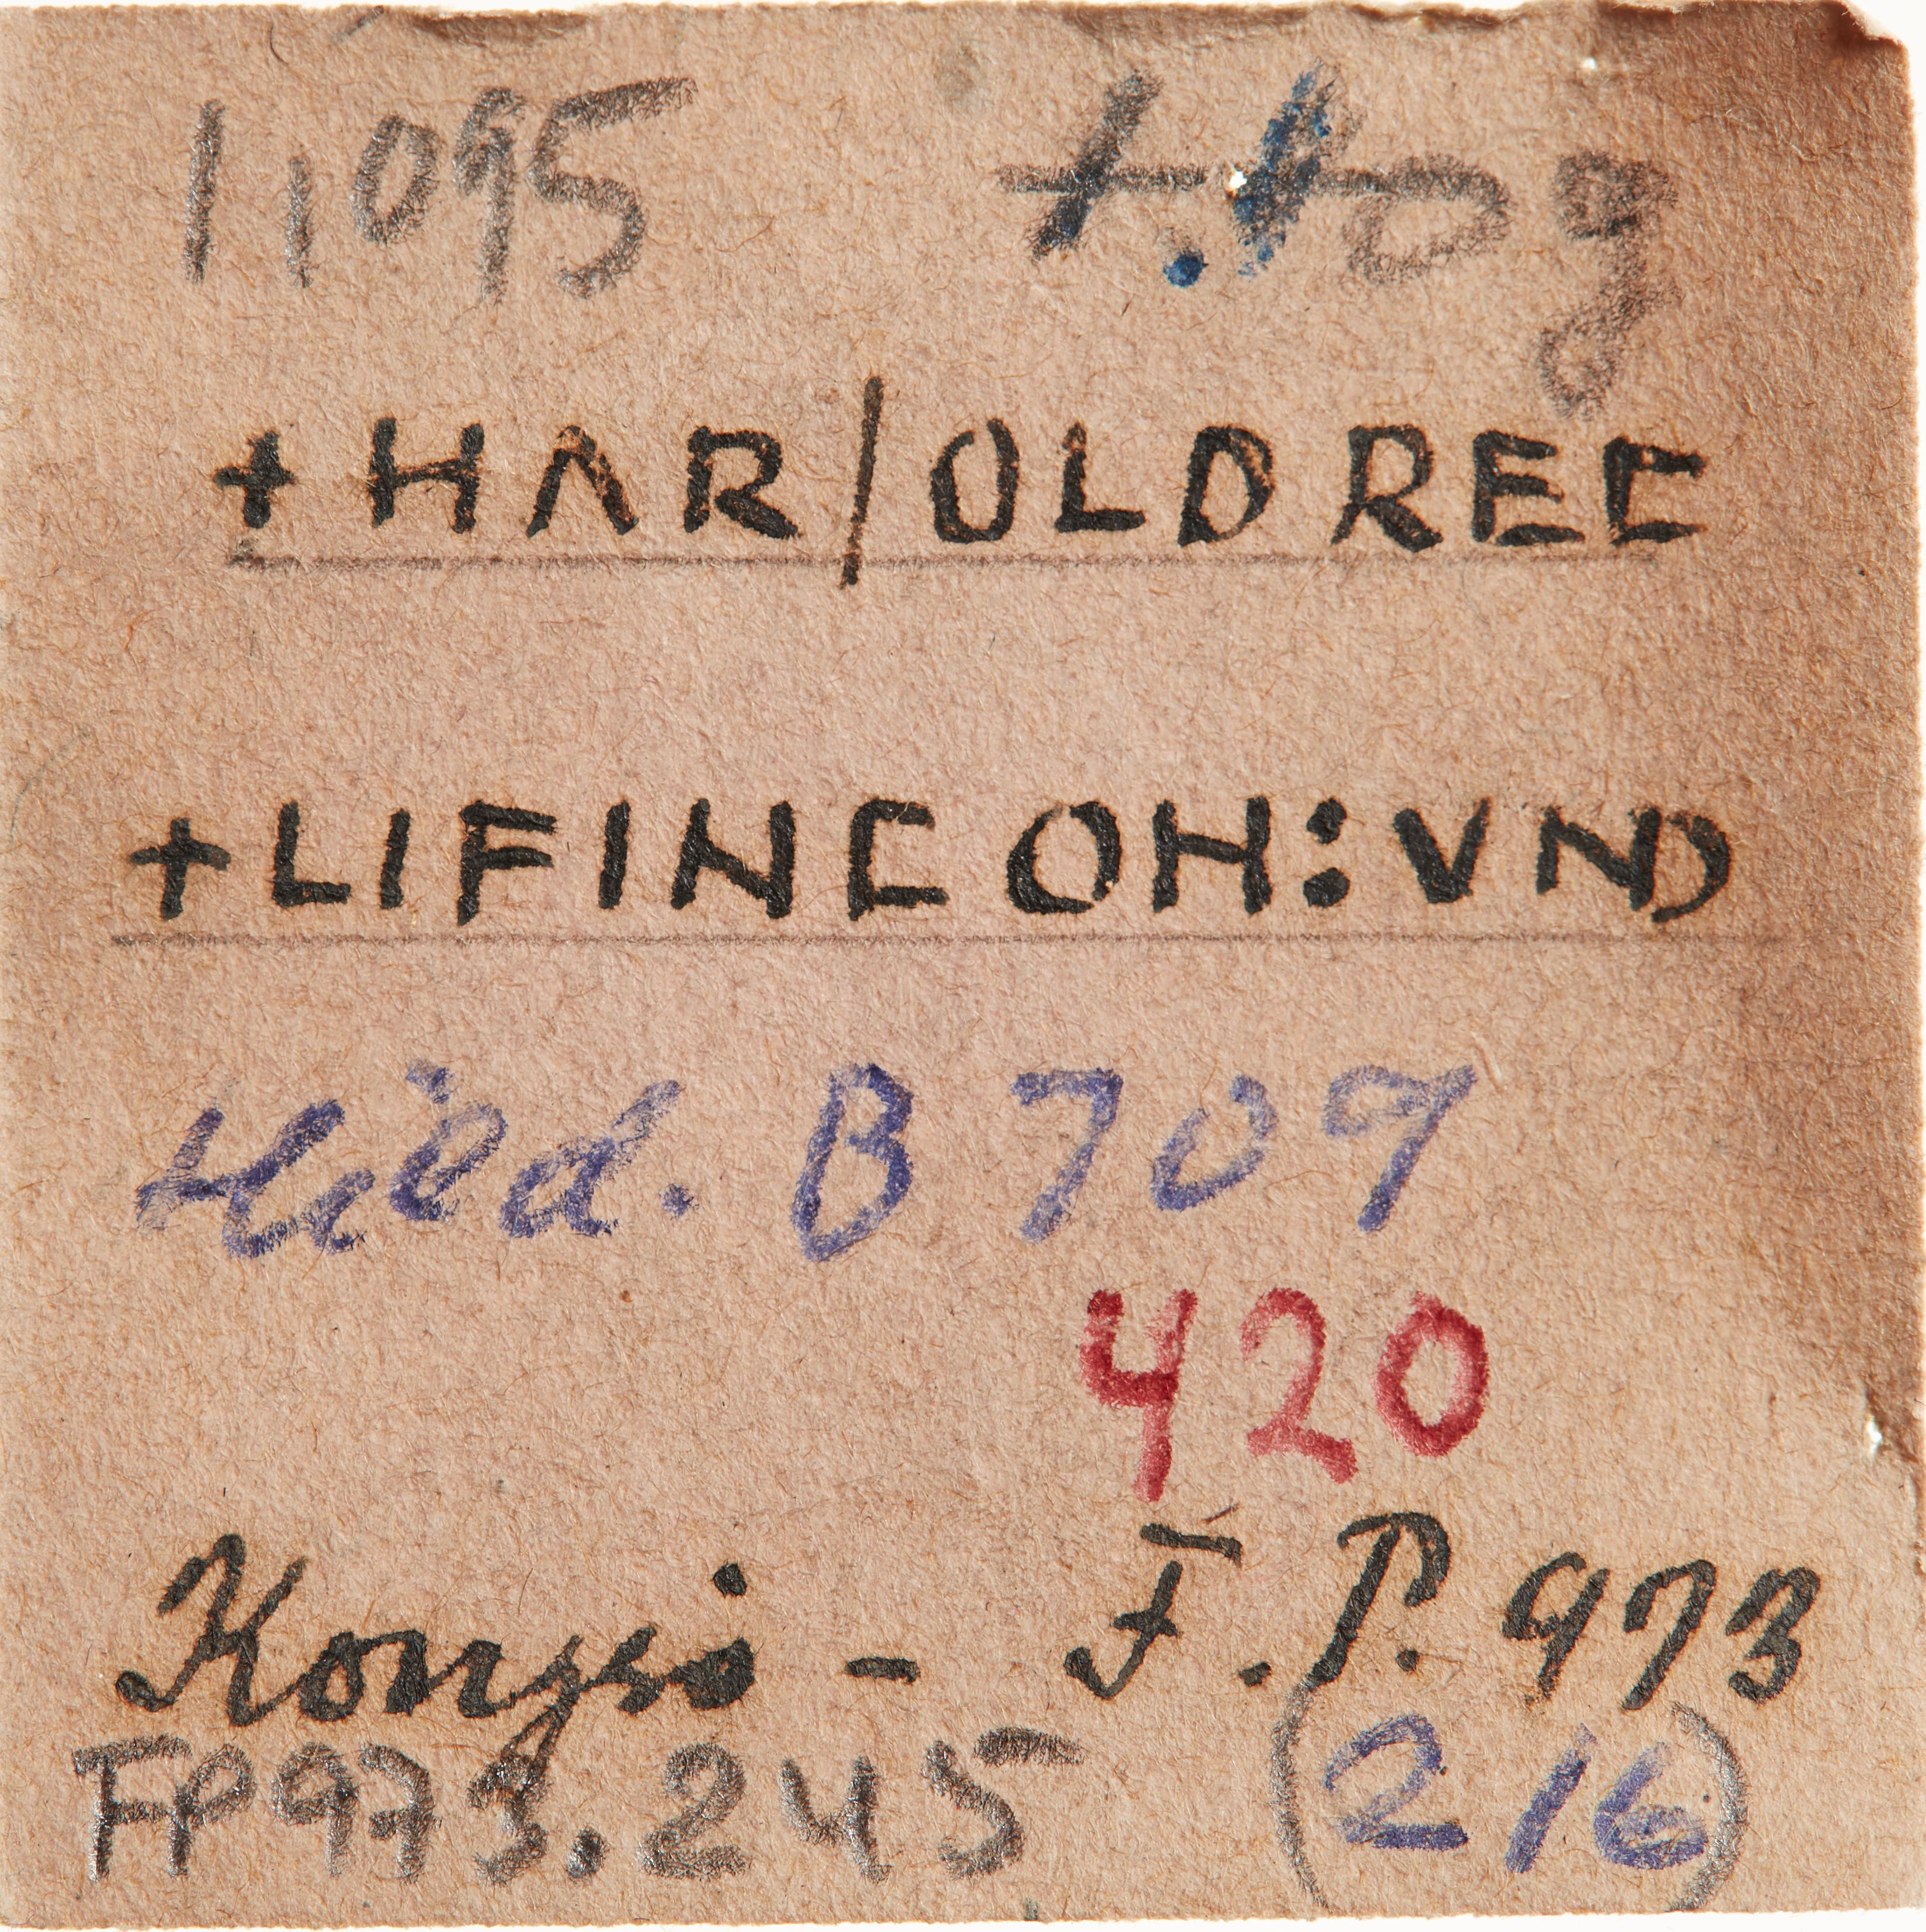 11095 1.10 g
+HAR/OLD REC
+LIFINC OH:VND
Hild. B 709
420
Kongsö - F.P. 973
FP973.245 (216)